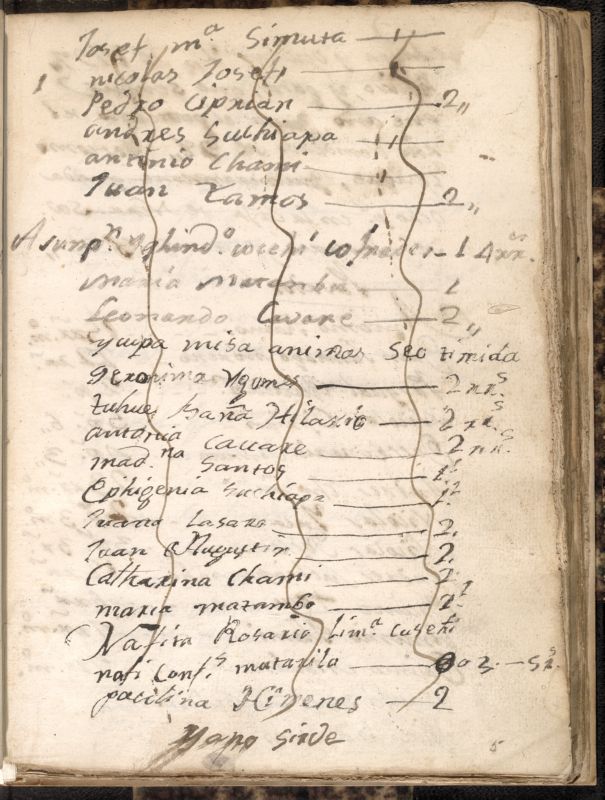 Josef m.a Simuta — 1
nicolas Josefi — 1
Pedro Ciprian — 2,,
andres Suchiapa — 1
antonio Chami — 1
Juan Ramos — 2,,
cofrades — 1 4 rr.s
maria matambu — 1
Leonardo Cavare — 2,,
yaipa misa animas Seo timida
Geronima Ygomes — 2 rr.s
Hilario — 2 rr.s
antonia Cauare — 2 rr.s
mad.na Santos — 1
Ephigenia Suchiapa — 1
Juana Lasaro — 2
Juan Augustin — 2
Catharina Chami — 2
maria matambo — 2
Nasita Rosario lim.a cuseti
nati Conf.s matarilo — 3. — 5 r.s
paulina Himenes — 2
Yapo Sirve
5